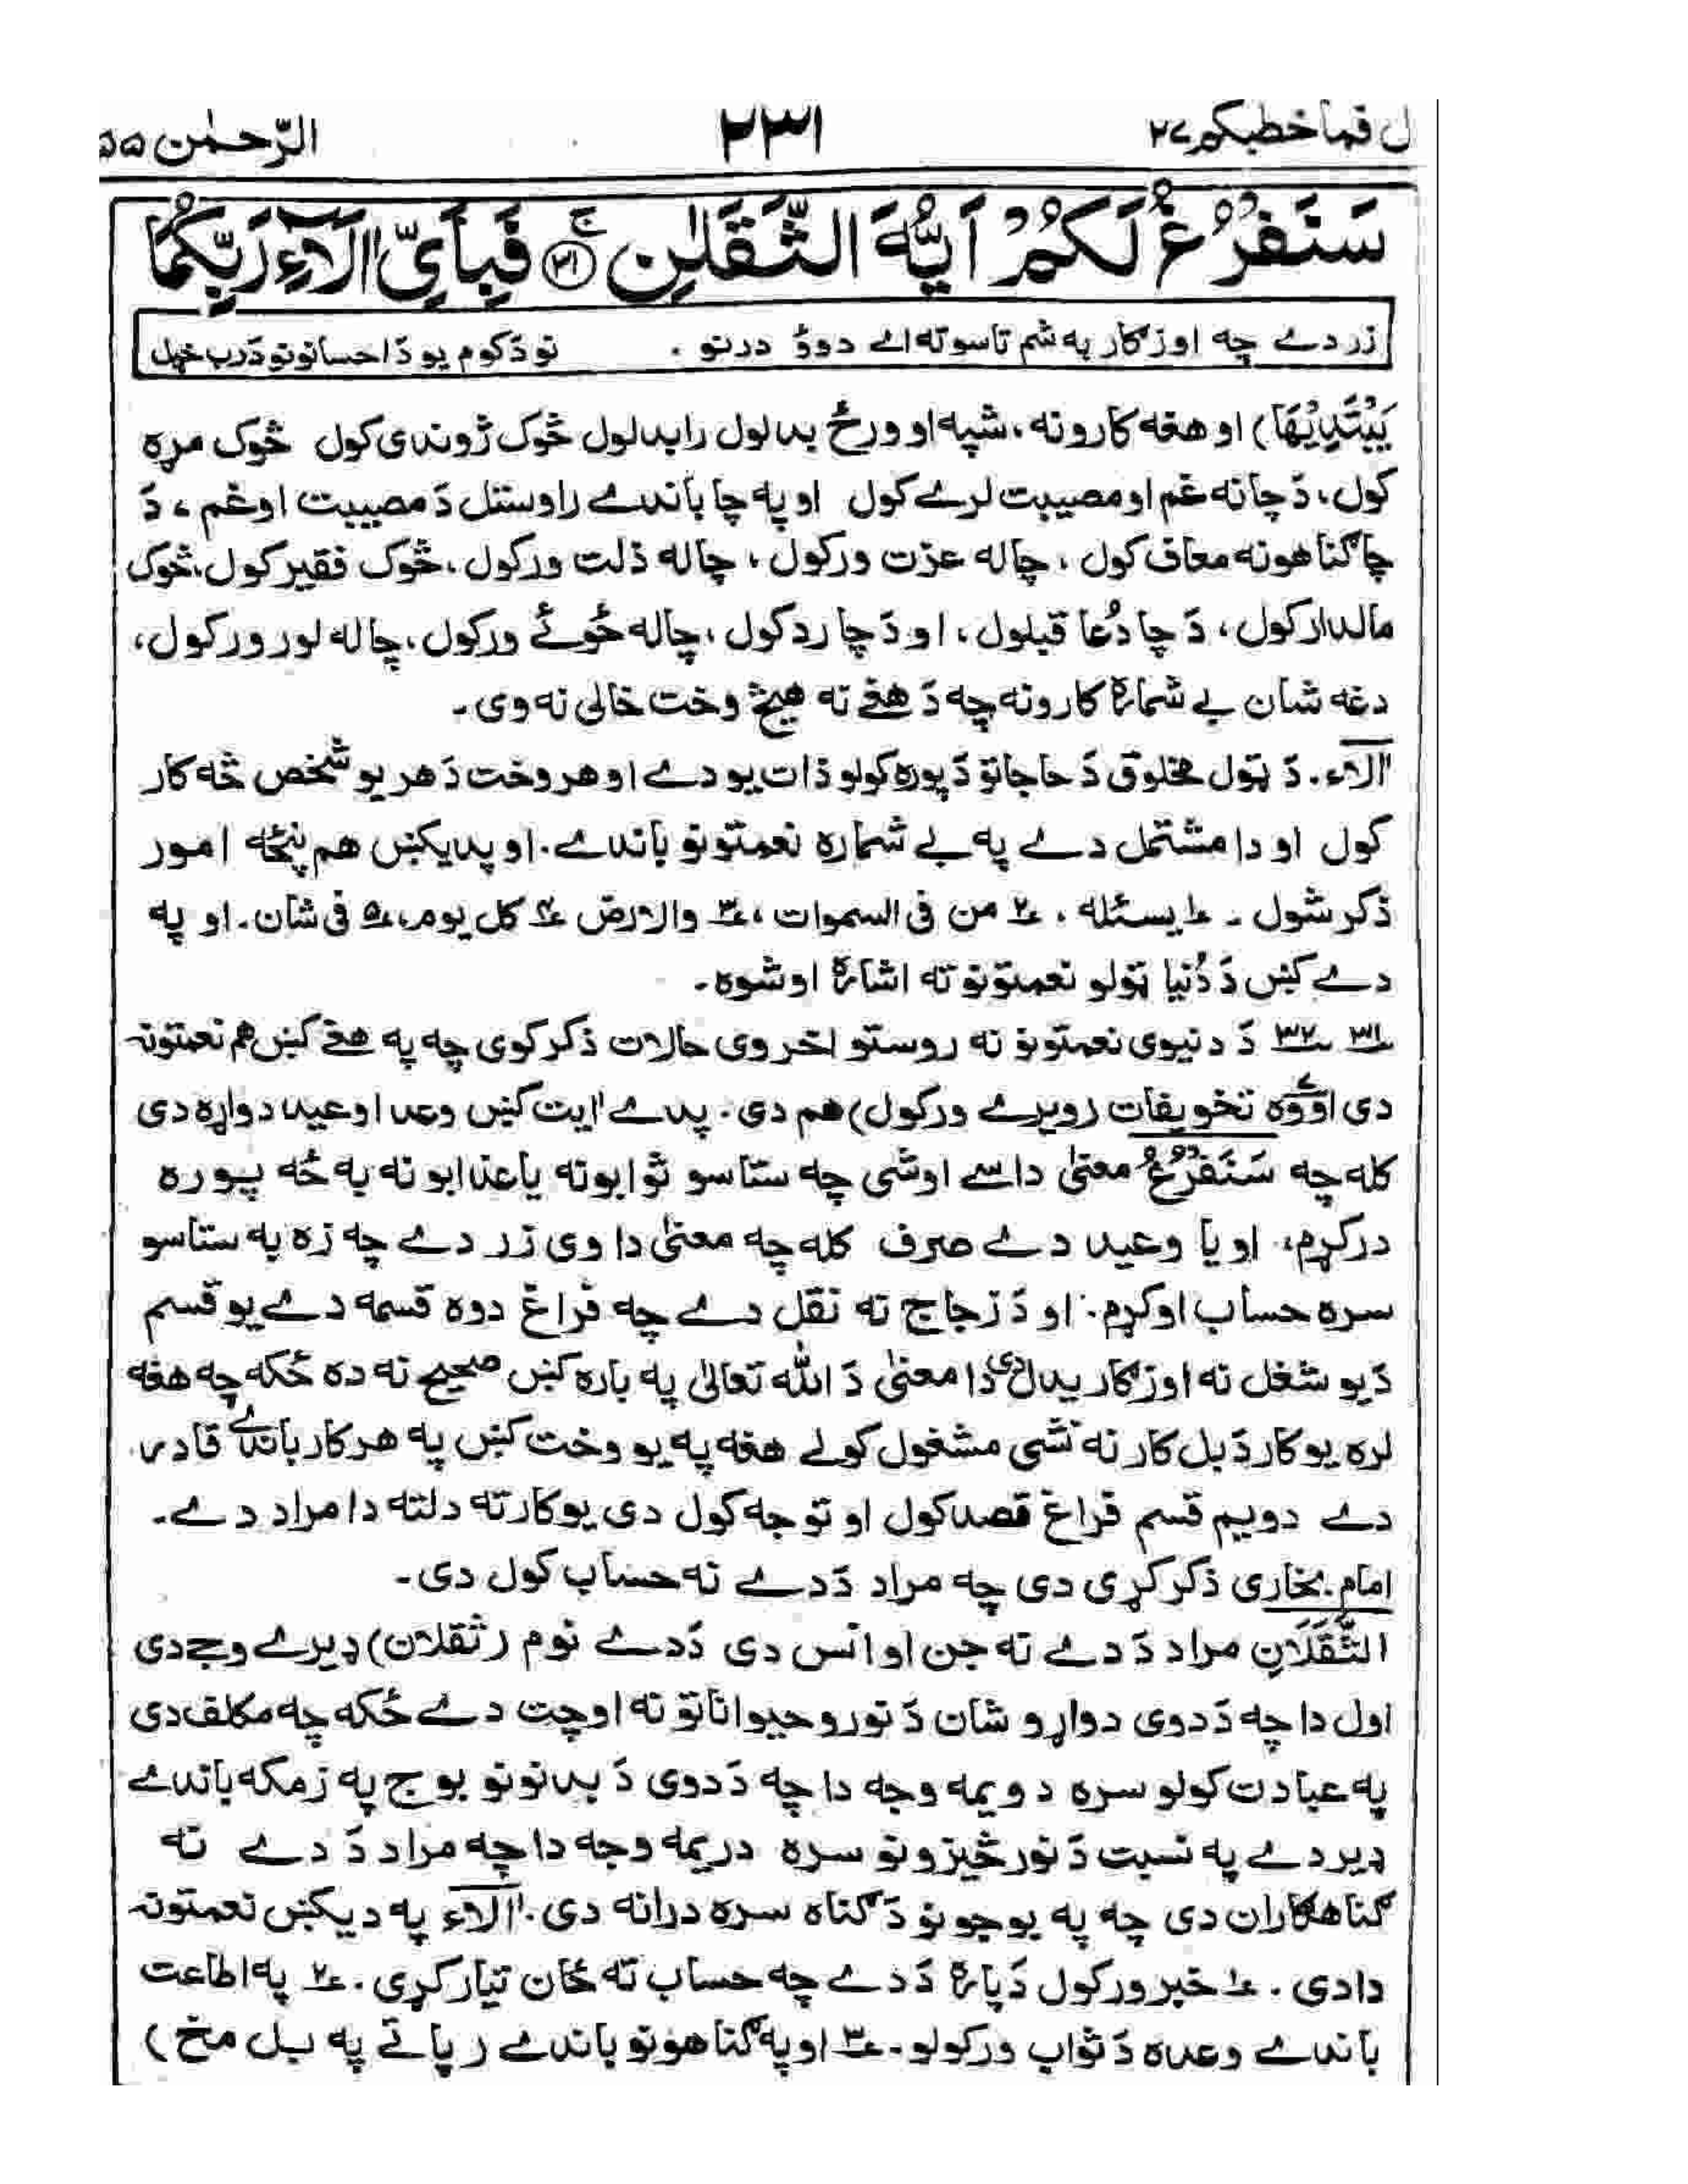 ل فما خطبکم ٢٧ ٢٣١ الرّحمٰن ۵۵
سَنَفْرُغُ لَكُمْ اَيُّهَ الثَّقَلٰنِ ﴿٣١﴾ۚ فَبِاَيِّ اٰلَآءِ رَبِّكُمَا
زر دے چه اوزګار به شم تاسو ته اے دوؤ درنو . نو دَ کوم یو دَ احسانونو دَ رب خپل
يَبْتَدِيْهَا) او هغه کارونه، شپه او ورځ بدلول رابدلول څوک ژوندی کول څوک مړه
کول، دَ چا نه غم او مصیبت لرے کول او په چا باندے راوستل دَ مصیبت او غم، دَ
چا ګناهونه معاف کول، چاله عزت ورکول، چاله ذلت ورکول، څوک فقیر کول، څوک
مالدار کول، دَ چا دُعا قبلول، او دَ چا رد کول، چاله ځوئے ورکول، چاله لور ورکول،
دغه شان بے شمارہ کارونه چه دَ هغے نه هیڅ وخت خالی نه وی۔
اٰلاء. دَ ټول مخلوق دَ حاجاتو دَ پوره کولو ذات یو دے او هر وخت دَ هر یو شخص څه کار
کول او دا مشتمل دے په بے شماره نعمتونو باندے. او پدیکښ هم پنځه امور
ذکر شول ۔ ١؎ یسئله ، ٢؎ من فی السموات، ٣؎ والارض ٤؎ کل یوم، ۵؎ فی شان. او په
دے کښ دَ دُنیا ټولو نعمتونو ته اشارۃ اوشوه۔
٣١ ٣٢ دَ دنیوی نعمتونو نه روستو اخروی حالات ذکر کوی چه په هغے کښ هم نعمتونہ
دی او تخویفات (ویرے ورکول) هم دی. پدے اٰیت کښ وعد او عید دواړه دی
کله چه سَنَفْرُغُ معنیٰ داسے اوشی چه ستاسو ثوابونه یا عذابونه به ځه پوره
درکړم، او یا وعید دے صرف کله چه معنیٰ دا وی زر دے چه زه به ستاسو
سره حساب اوکړم. او دَ زجاج نه نقل دے چه فراغ دوه قسمه دے یو قسم
دَ یو شغل نه اوزګاریدل دی دا معنیٰ دَ الله تعالیٰ په باره کښ صحیح نه ده ځکه چه هغه
لره یو کار دَ بل کار نه نشی مشغول کولے هغه په یو وخت کښ په هر کار باندے قادر
دے دویم قسم فراغ قصد کول او توجه کول دی یو کار ته دلته دا مراد دے۔
امام بخاری ذکر کړی دی چه مراد دَ دے نه حساب کول دی۔
الثَّقَلَانِ مراد دَ دے نه جن او انس دی دَ دے نوم (ثقلان) ډیرے وجے دی
اول دا چه دَ دوی دواړو شان دَ نورو حیواناتو نه اوچت دے ځکه چه مکلف دی
په عبادت کولو سره دویمه وجه دا چه دَ دوی دَ بدنونو بوج په زمکه باندے
ډیر دے په نسبت دَ نور څیزونو سره دریمه وجه دا چه مراد دَ دے نه
ګناهکاران دی چه په بوجونو دَ ګناه سره درانه دی. اٰلاء په دیکښ نعمتونہ
دادی . ١؎ خبر ورکول دَ پارۃ دَ دے چه حساب ته ځان تیار کړی. ٢؎ په اطاعت
باندے وعده دَ ثواب ورکولو. ٣؎ او په ګناهونو باندے (پاتے په بل مخ)